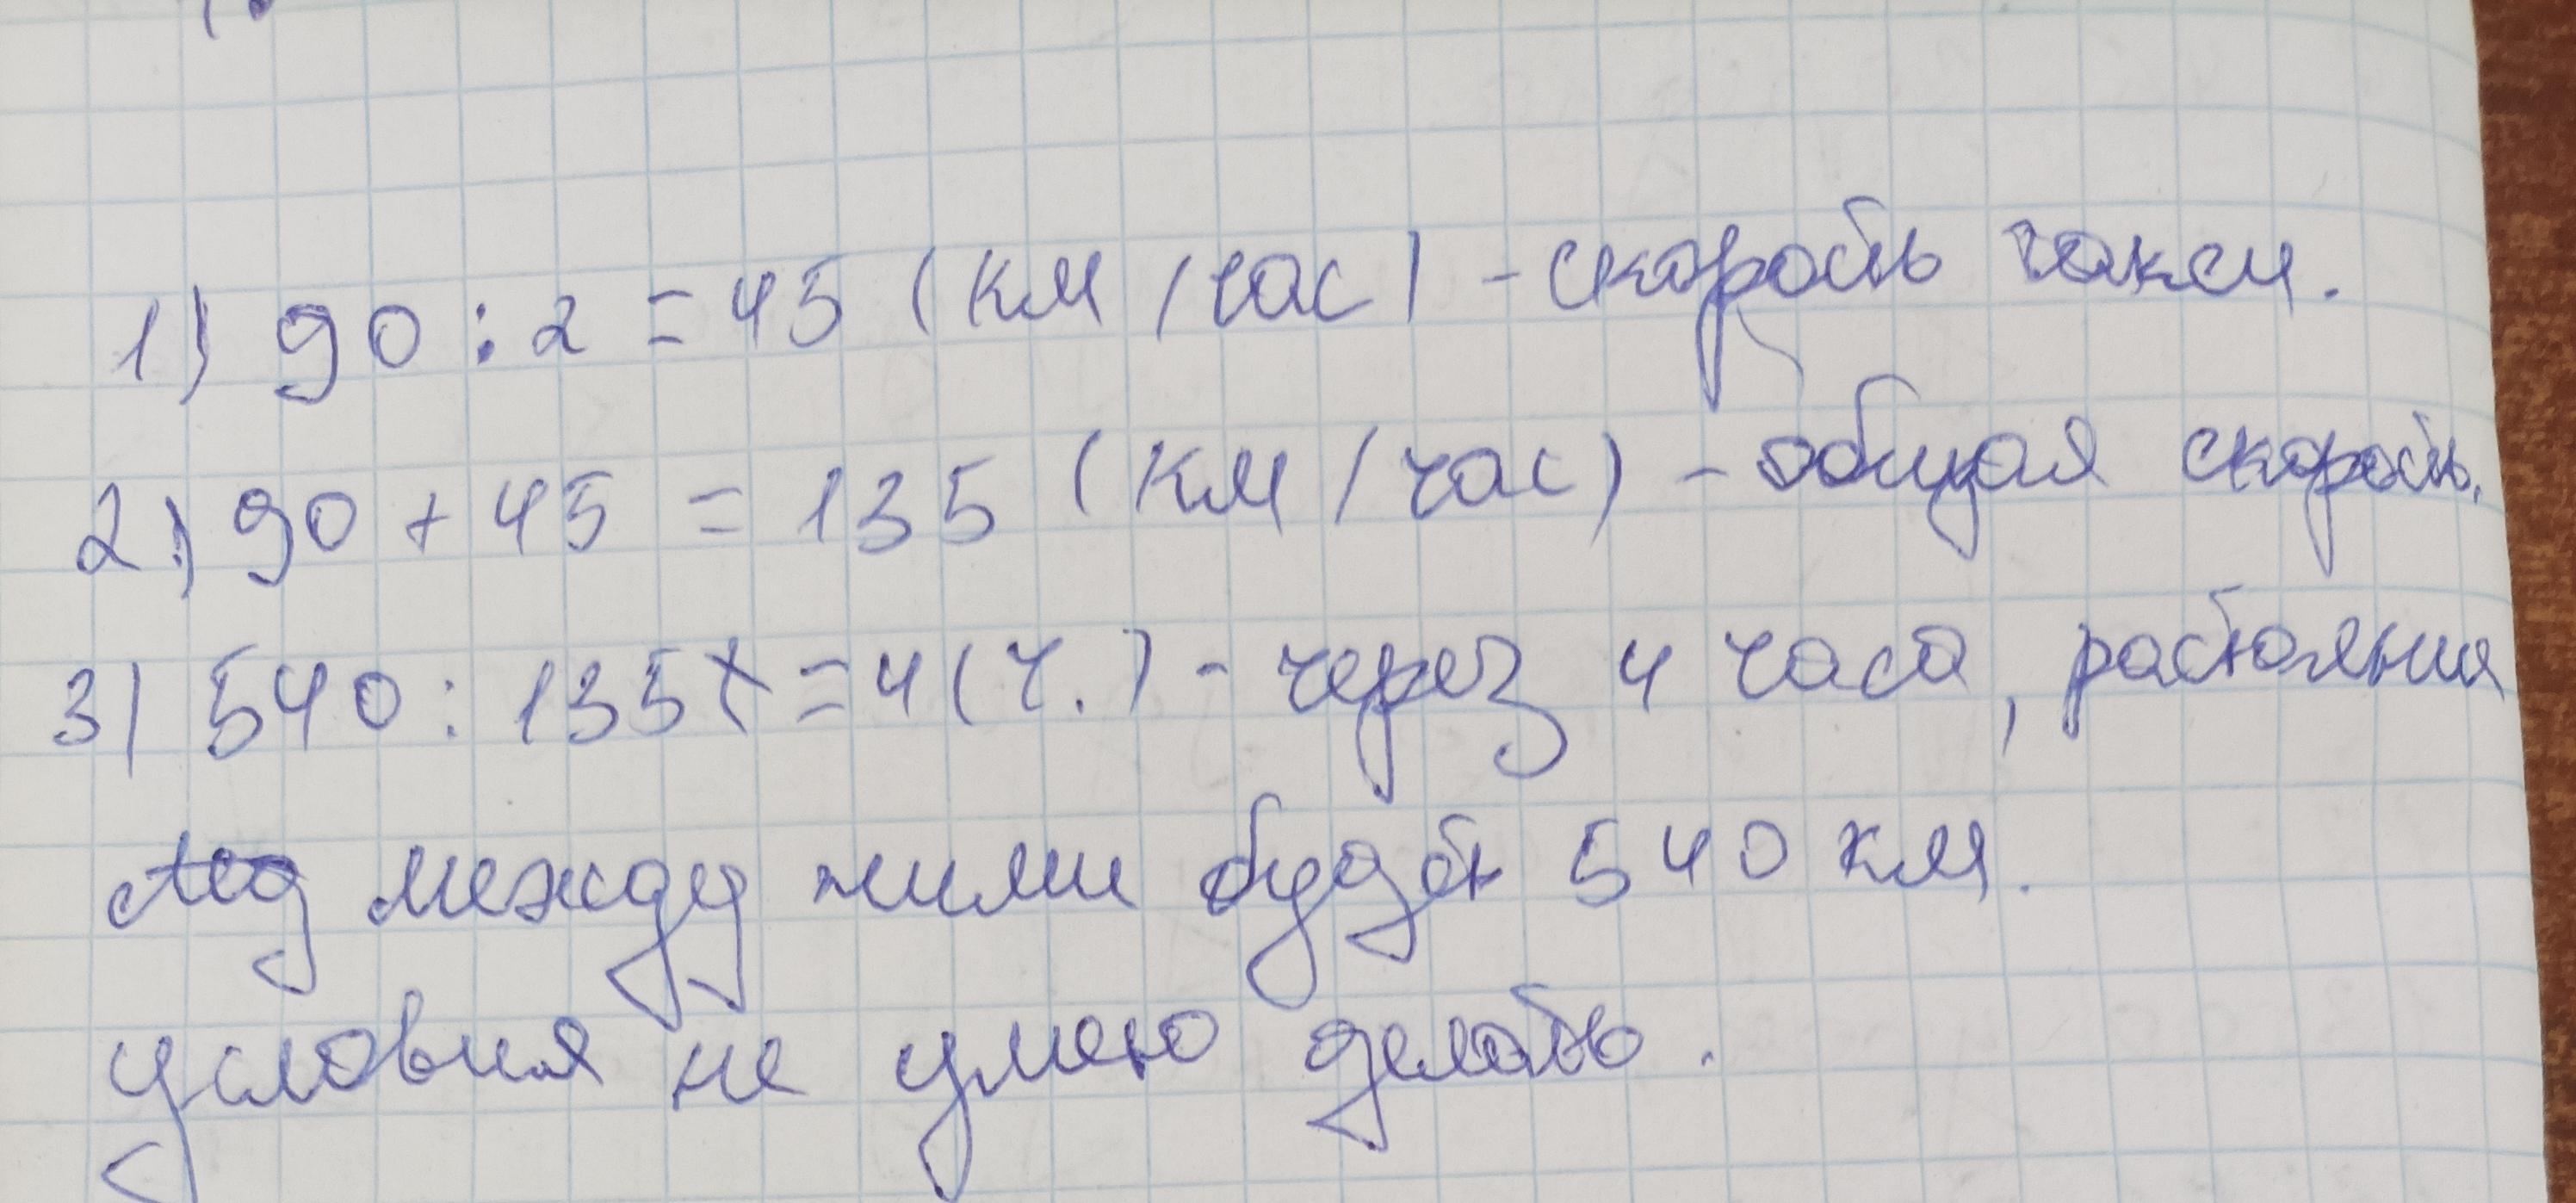 1) 90 : 2 = 45 (км/час) - скорость такси.
2) 90 + 45 = 135 (км/час) - общая скорость.
3) 540 : 135 = 4 (ч.) - через 4 часа, растояния
между ними будет 540 км.
условия не умею делать.